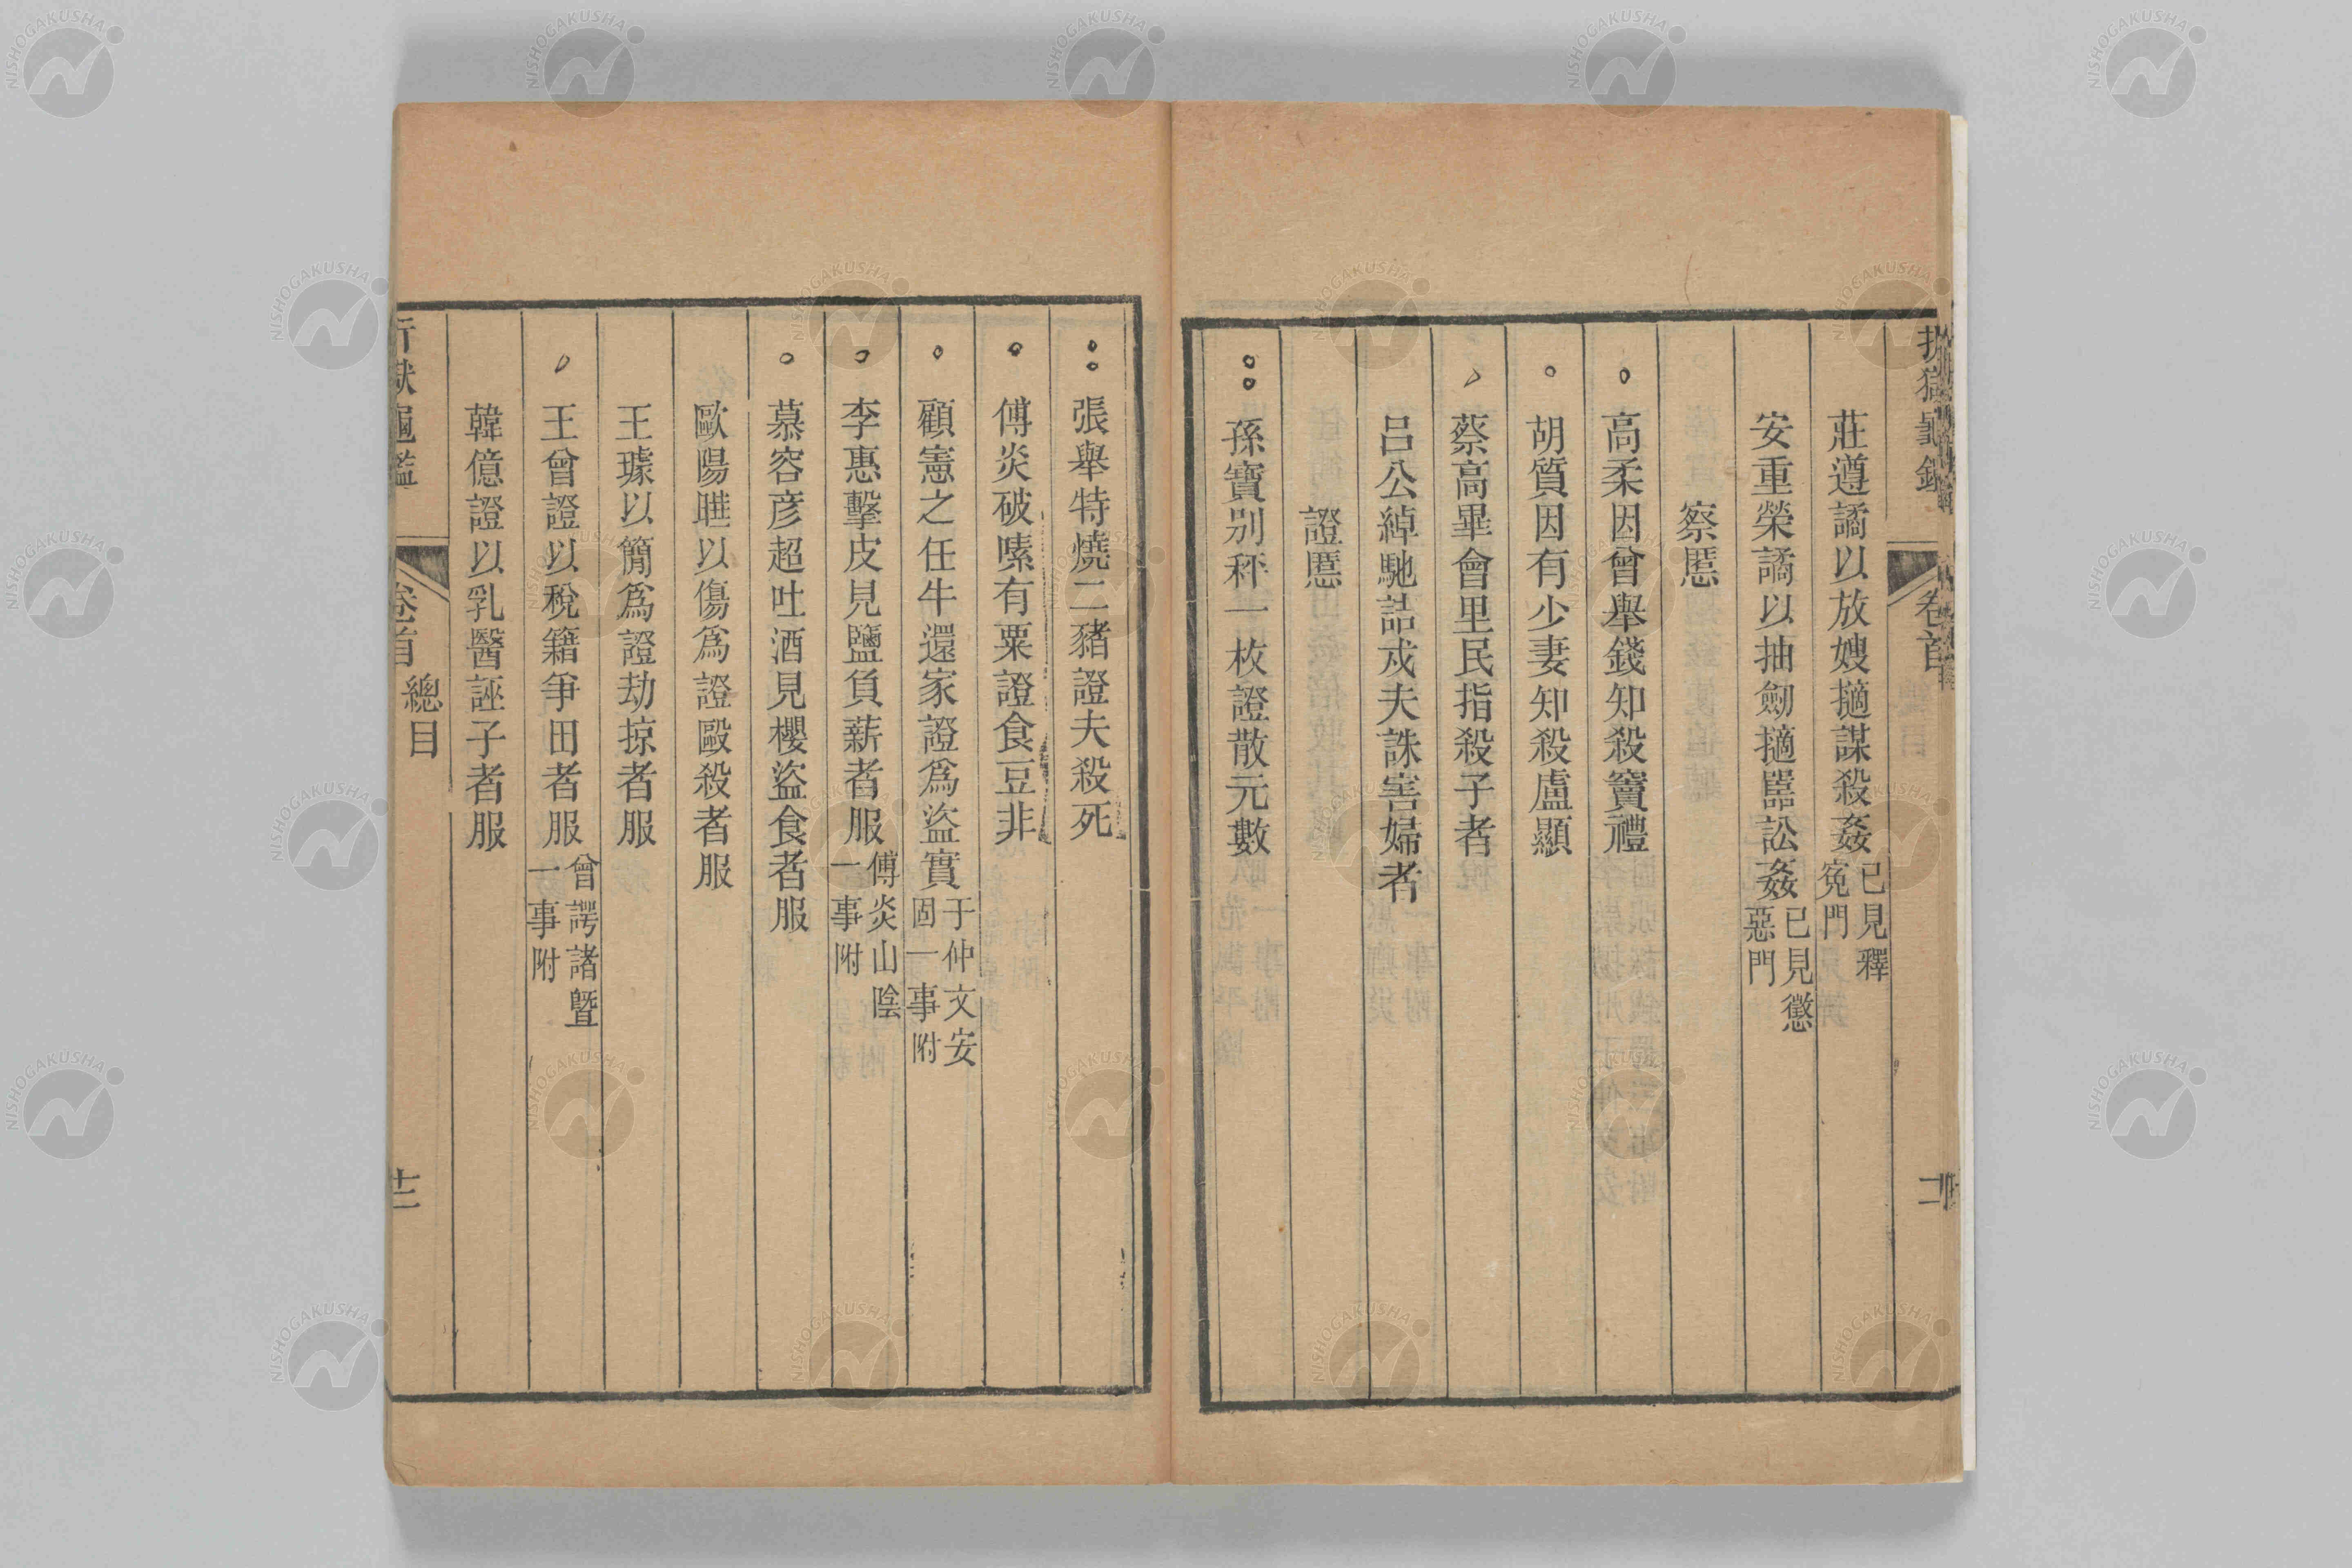 莊遵譎以放嫂擿謀殺姦已見釋寃門
安重榮譎以抽劒擿嚚訟姦已見懲惡門
察慝
高柔因曾舉錢知殺竇禮
胡質因有少妻知殺盧顯
蔡高畢會里民指殺子者
呂公綽馳詰戍夫誅害婦者
證慝
孫寶別秤一枚證散元數
張舉特燒二豬證夫殺死
傅炎破嗉有粟證食豆非
顧憲之任牛還家證爲盜實于仲文安固一事附
李惠擊皮見鹽負薪者服傅炎山陰一事附
慕容彥超吐酒見櫻盜食者服
歐陽曄以傷爲證毆殺者服
王璩以簡爲證劫掠者服
王曾證以稅籍爭田者服曾諤諸暨一事附
韓億證以乳醫誣子者服
折獄龜鑑 卷首 總目
NISHOGAKUSHA